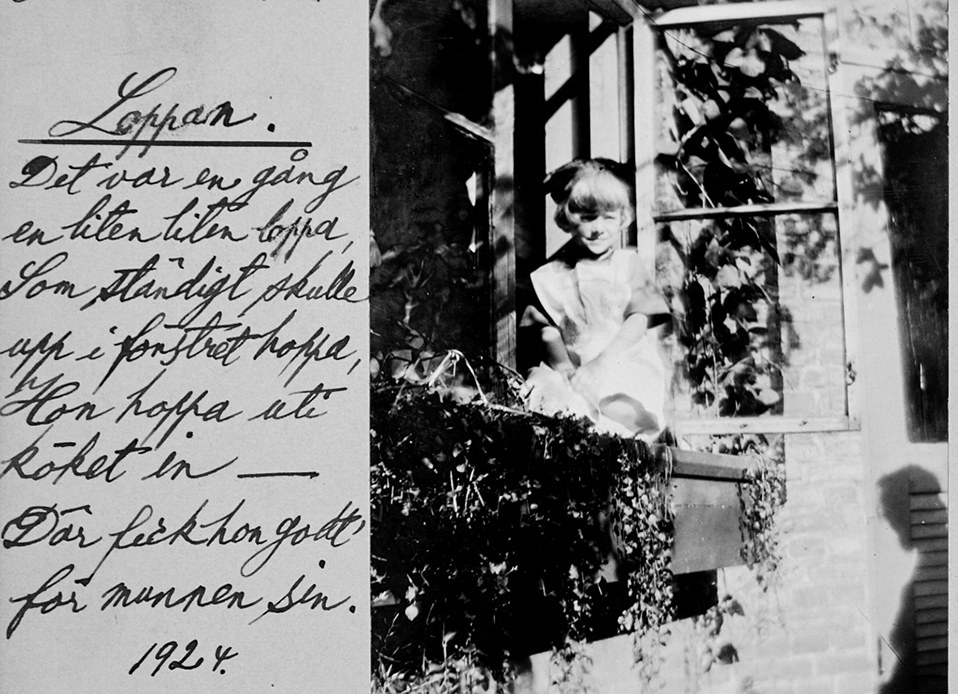 Loppan.
Det var en gång
en liten liten loppa,
Som ständigt skulle
upp i fönstret hoppa,
Hon hoppa uti
köket in —
Där fick hon godt
för munnen sin.
1924.